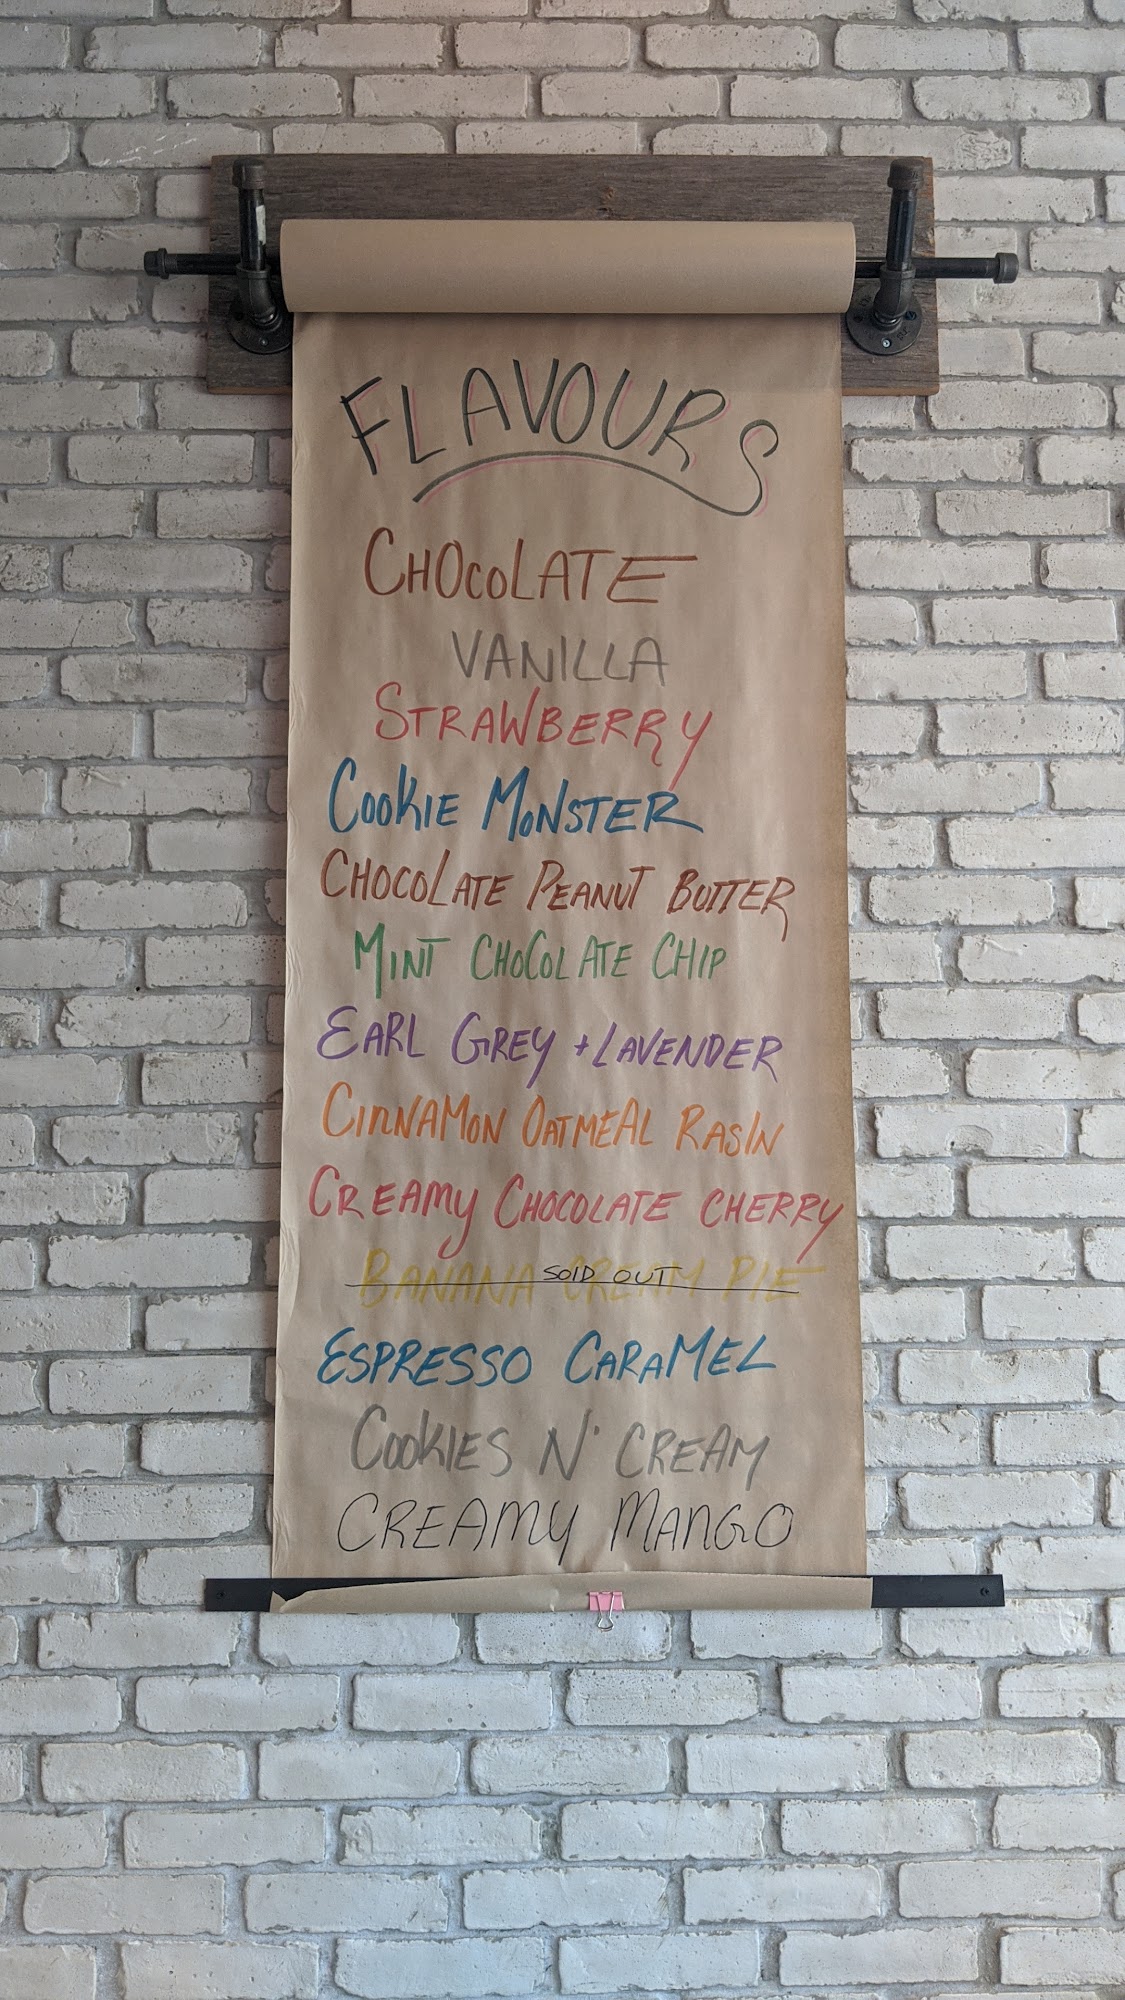 FLAVOURS
CHOCOLATE
VANILLA
STRAWBERRY
COOKIE MONSTER
CHOCOLATE PEANUT BUTTER
MINT CHOCOLATE CHIP
EARL GREY + LAVENDER
CINNAMON OATMEAL RASIN
CREAMY CHOCOLATE CHERRY
BANANA CREAM PIE
SOLD OUT
ESPRESSO CARAMEL
COOKIES N' CREAM
CREAMY MANGO